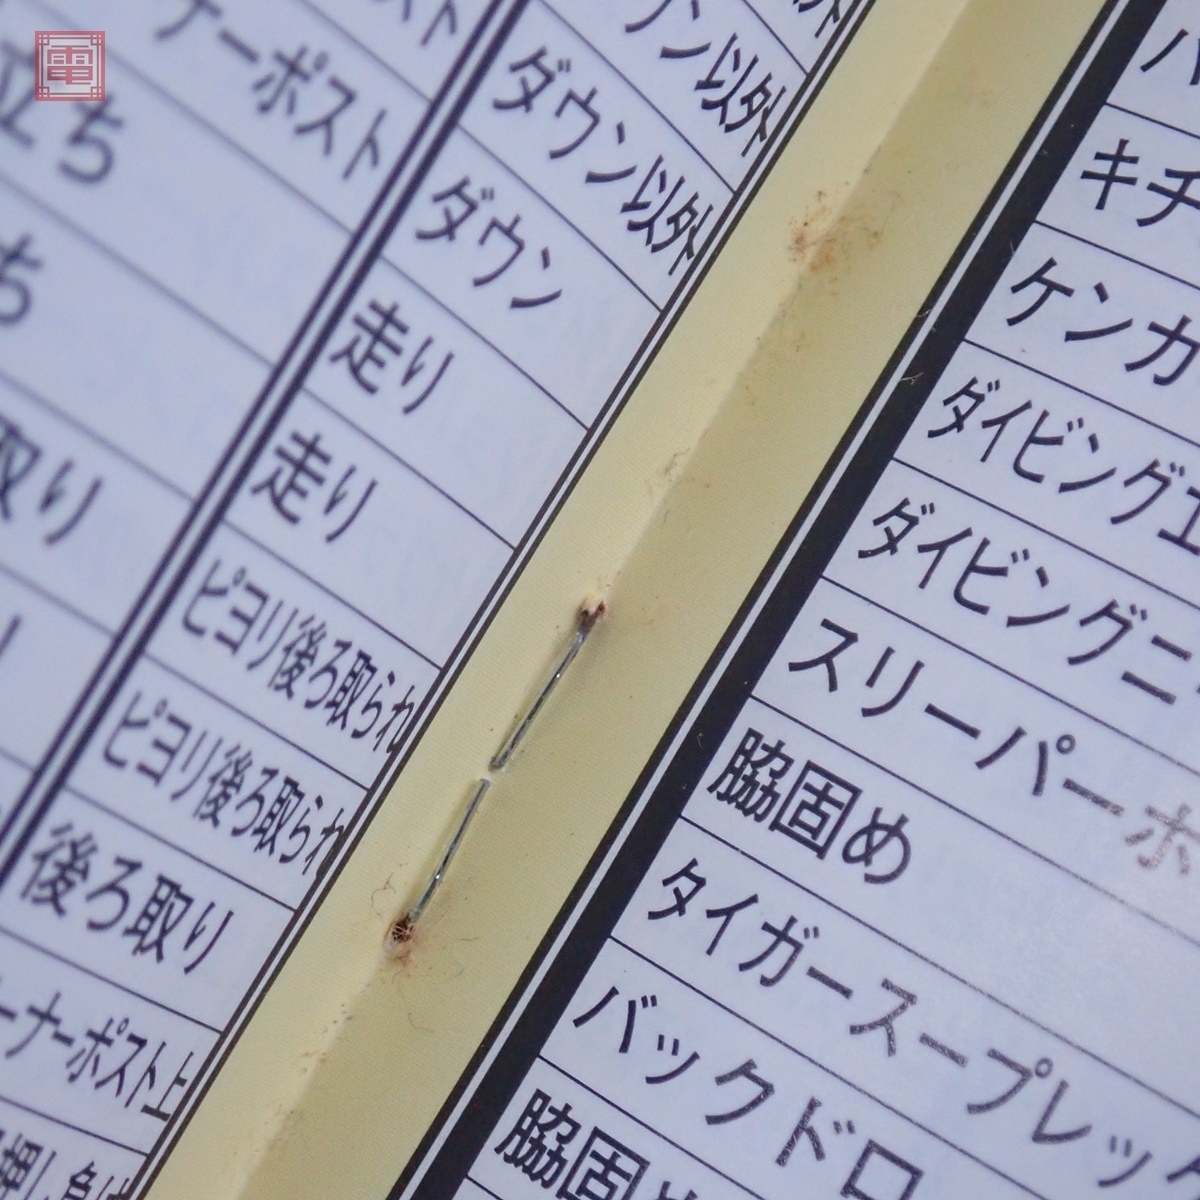 電
立ち
ち
取り
ナーポスト
スト
ダウン以外
ダウン
走り
走り
ピヨリ後ろ取られ
ピヨリ後ろ取られ
後ろ取り
ーナーポスト上
キチ
ケンカ
ダイビングエ
ダイビングニー
スリーパーホ
脇固め
タイガースープレッ
バックドロ
脇固め